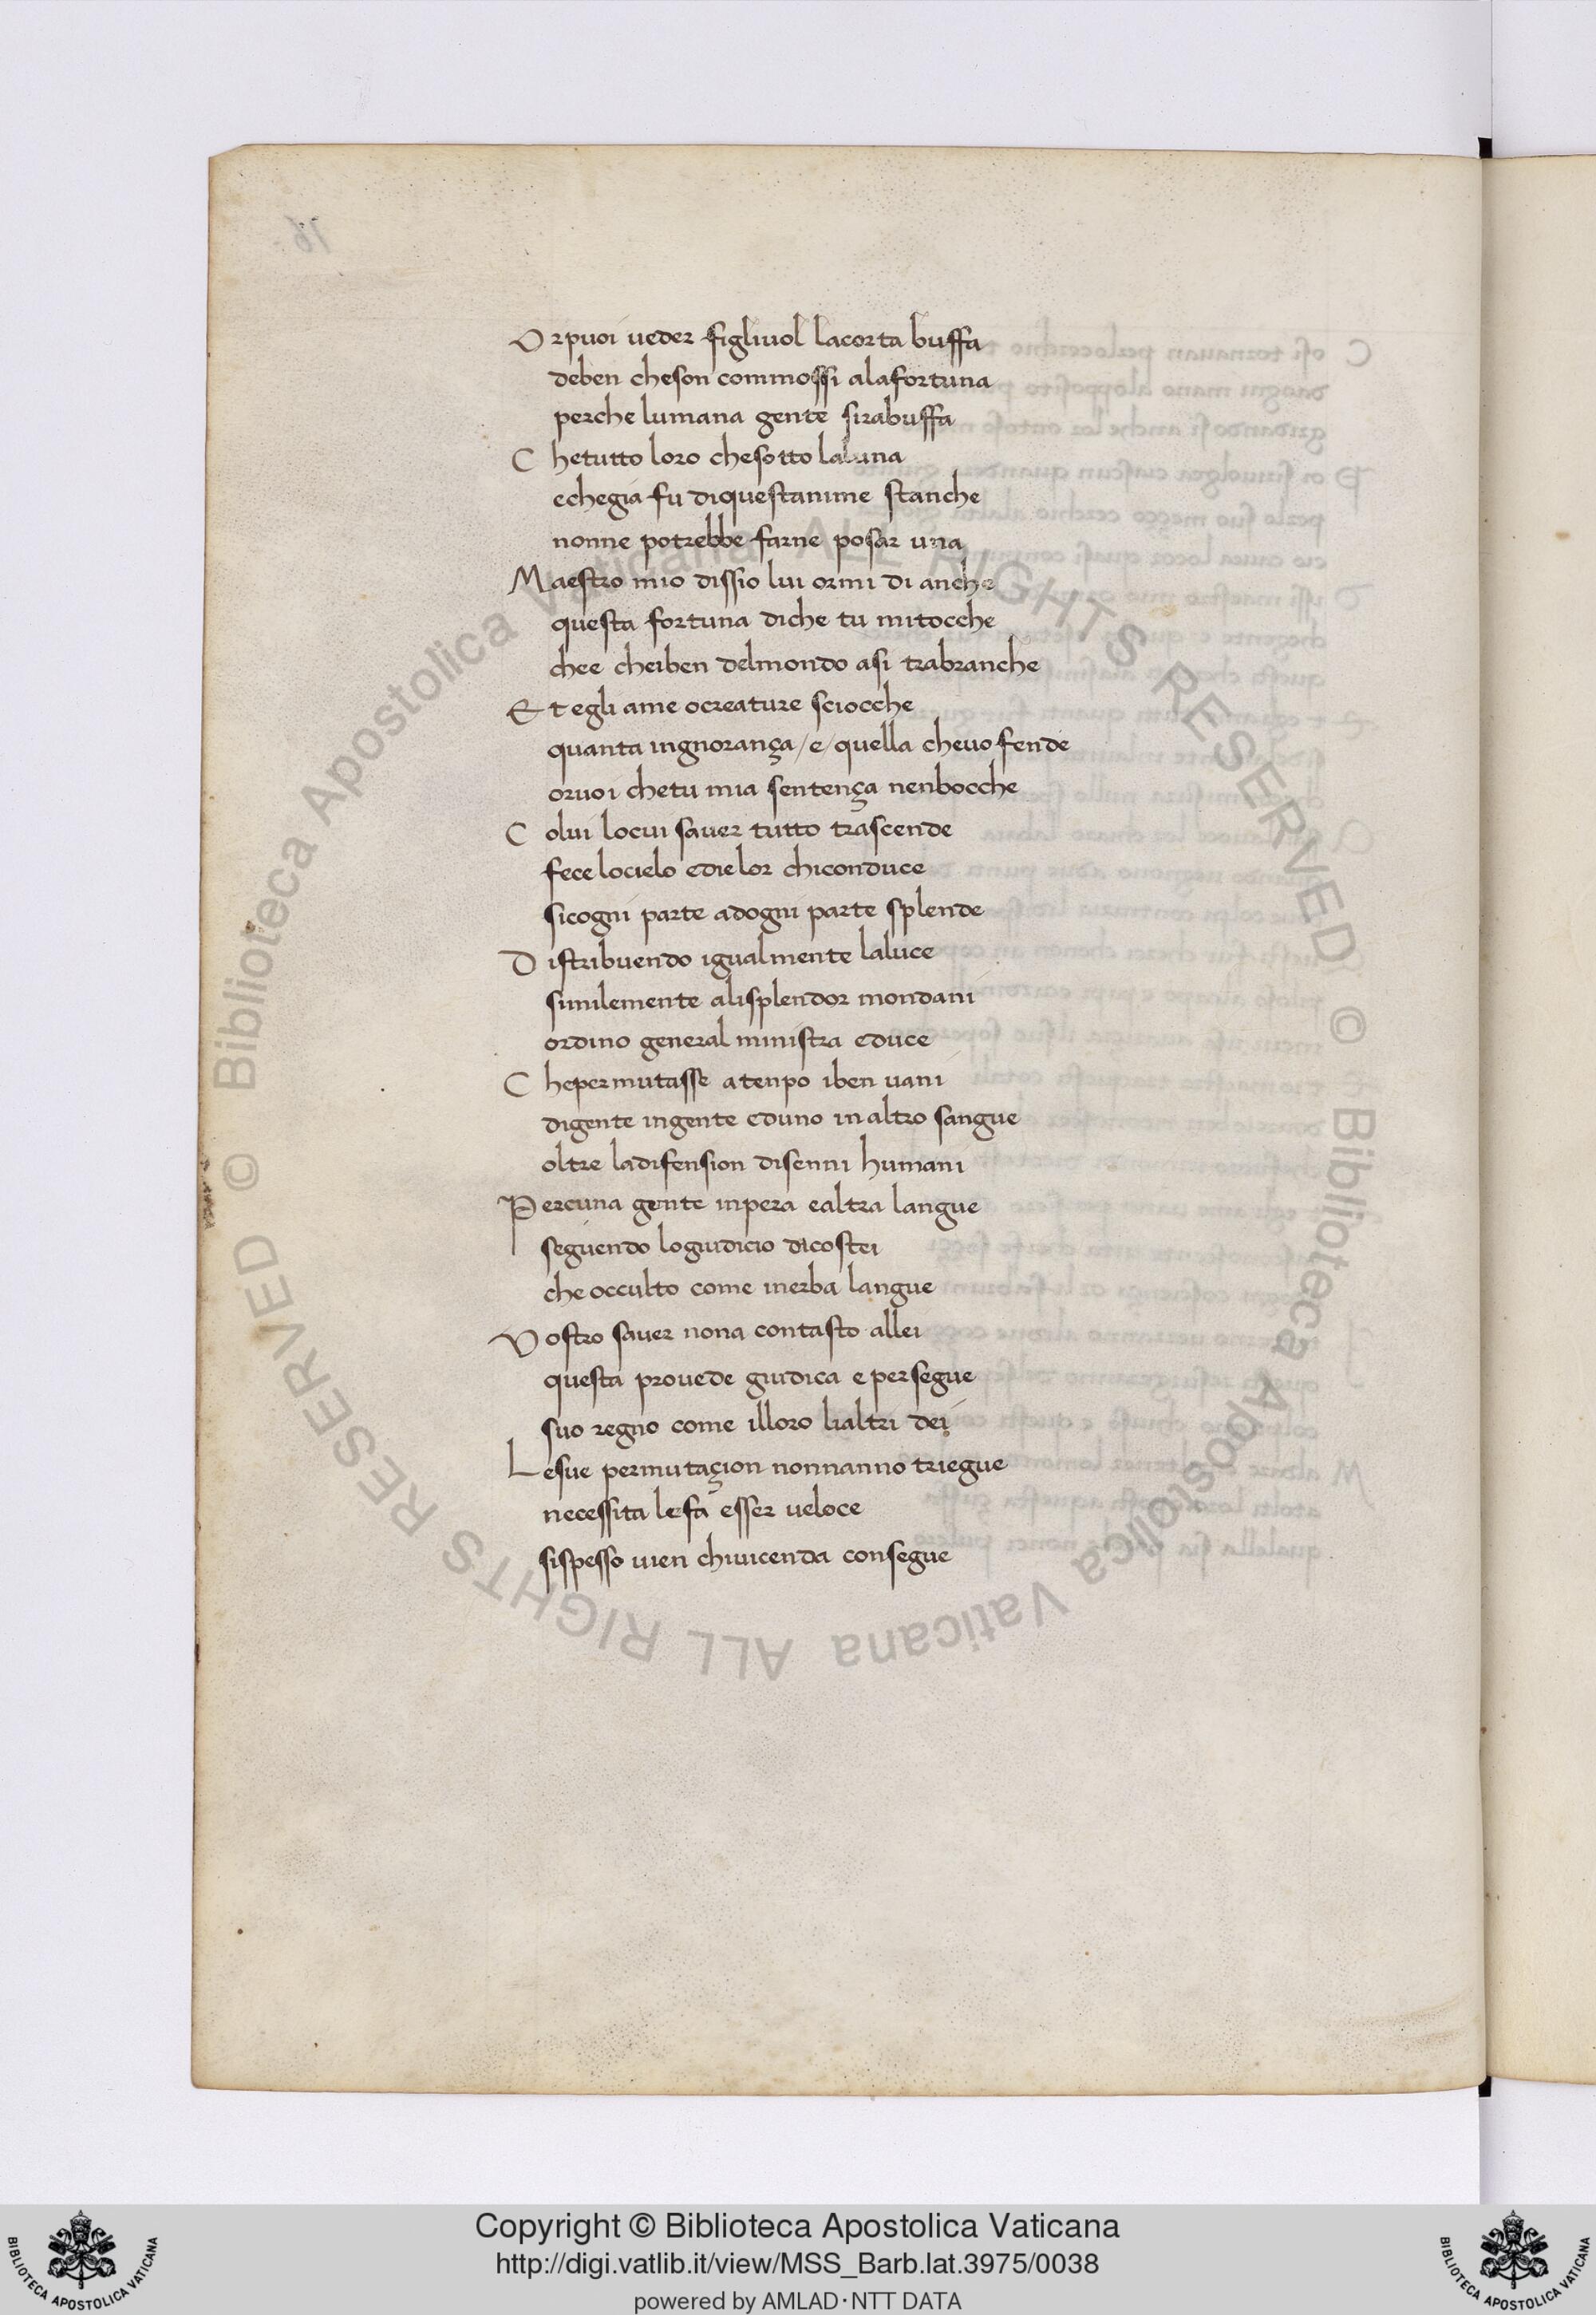 Orpuoi ueder figliuol lacorta buffa
deben cheson commossi alafortuna
perche lumana gente sirabuffa
Chetutto loro chesotto laluna
echegia fu diquestanime stanche
nonne potrebbe farne posar una
Maestro mio dissio lui ormi di anche
questa fortuna diche tu mitocche
chee cheiben delmondo asi trabranche
Et egli ame ocreature sciocche
quanta ingnorança/e/quella cheuofende
oruoi chetu mia sentença nenbocche
Colui locui sauer tutto trascende
fece locielo edielor chiconduce
sicogni parte adogni parte splende
Distribuendo igualmente laluce
similemente alisplendor mondani
ordino general ministra educe
Chepermutasse atenpo iben uani
digente ingente eduno inaltro sangue
oltre ladifension disenni humani
Percuna gente inpera ealtra langue
seguendo logiudicio dicostei
che occulto come inerba langue
Vostro sauer nona contasto allei
questa prouede giudica e persegue
suo regno come illoro lialtri dei
Lesue permutaçion nonnanno triegue
necessita lefa esser ueloce
sispesso uien chiuicenda consegue
Copyright © Biblioteca Apostolica Vaticana
http://digi.vatlib.it/view/MSS_Barb.lat.3975/0038
powered by AMLAD·NTT DATA
BIBLIOTECA APOSTOLICA VATICANA
BIBLIOTECA APOSTOLICA VATICANA
© Biblioteca Apostolica Vaticana ALL RIGHTS RESERVED
© Biblioteca Apostolica Vaticana ALL RIGHTS RESERVED